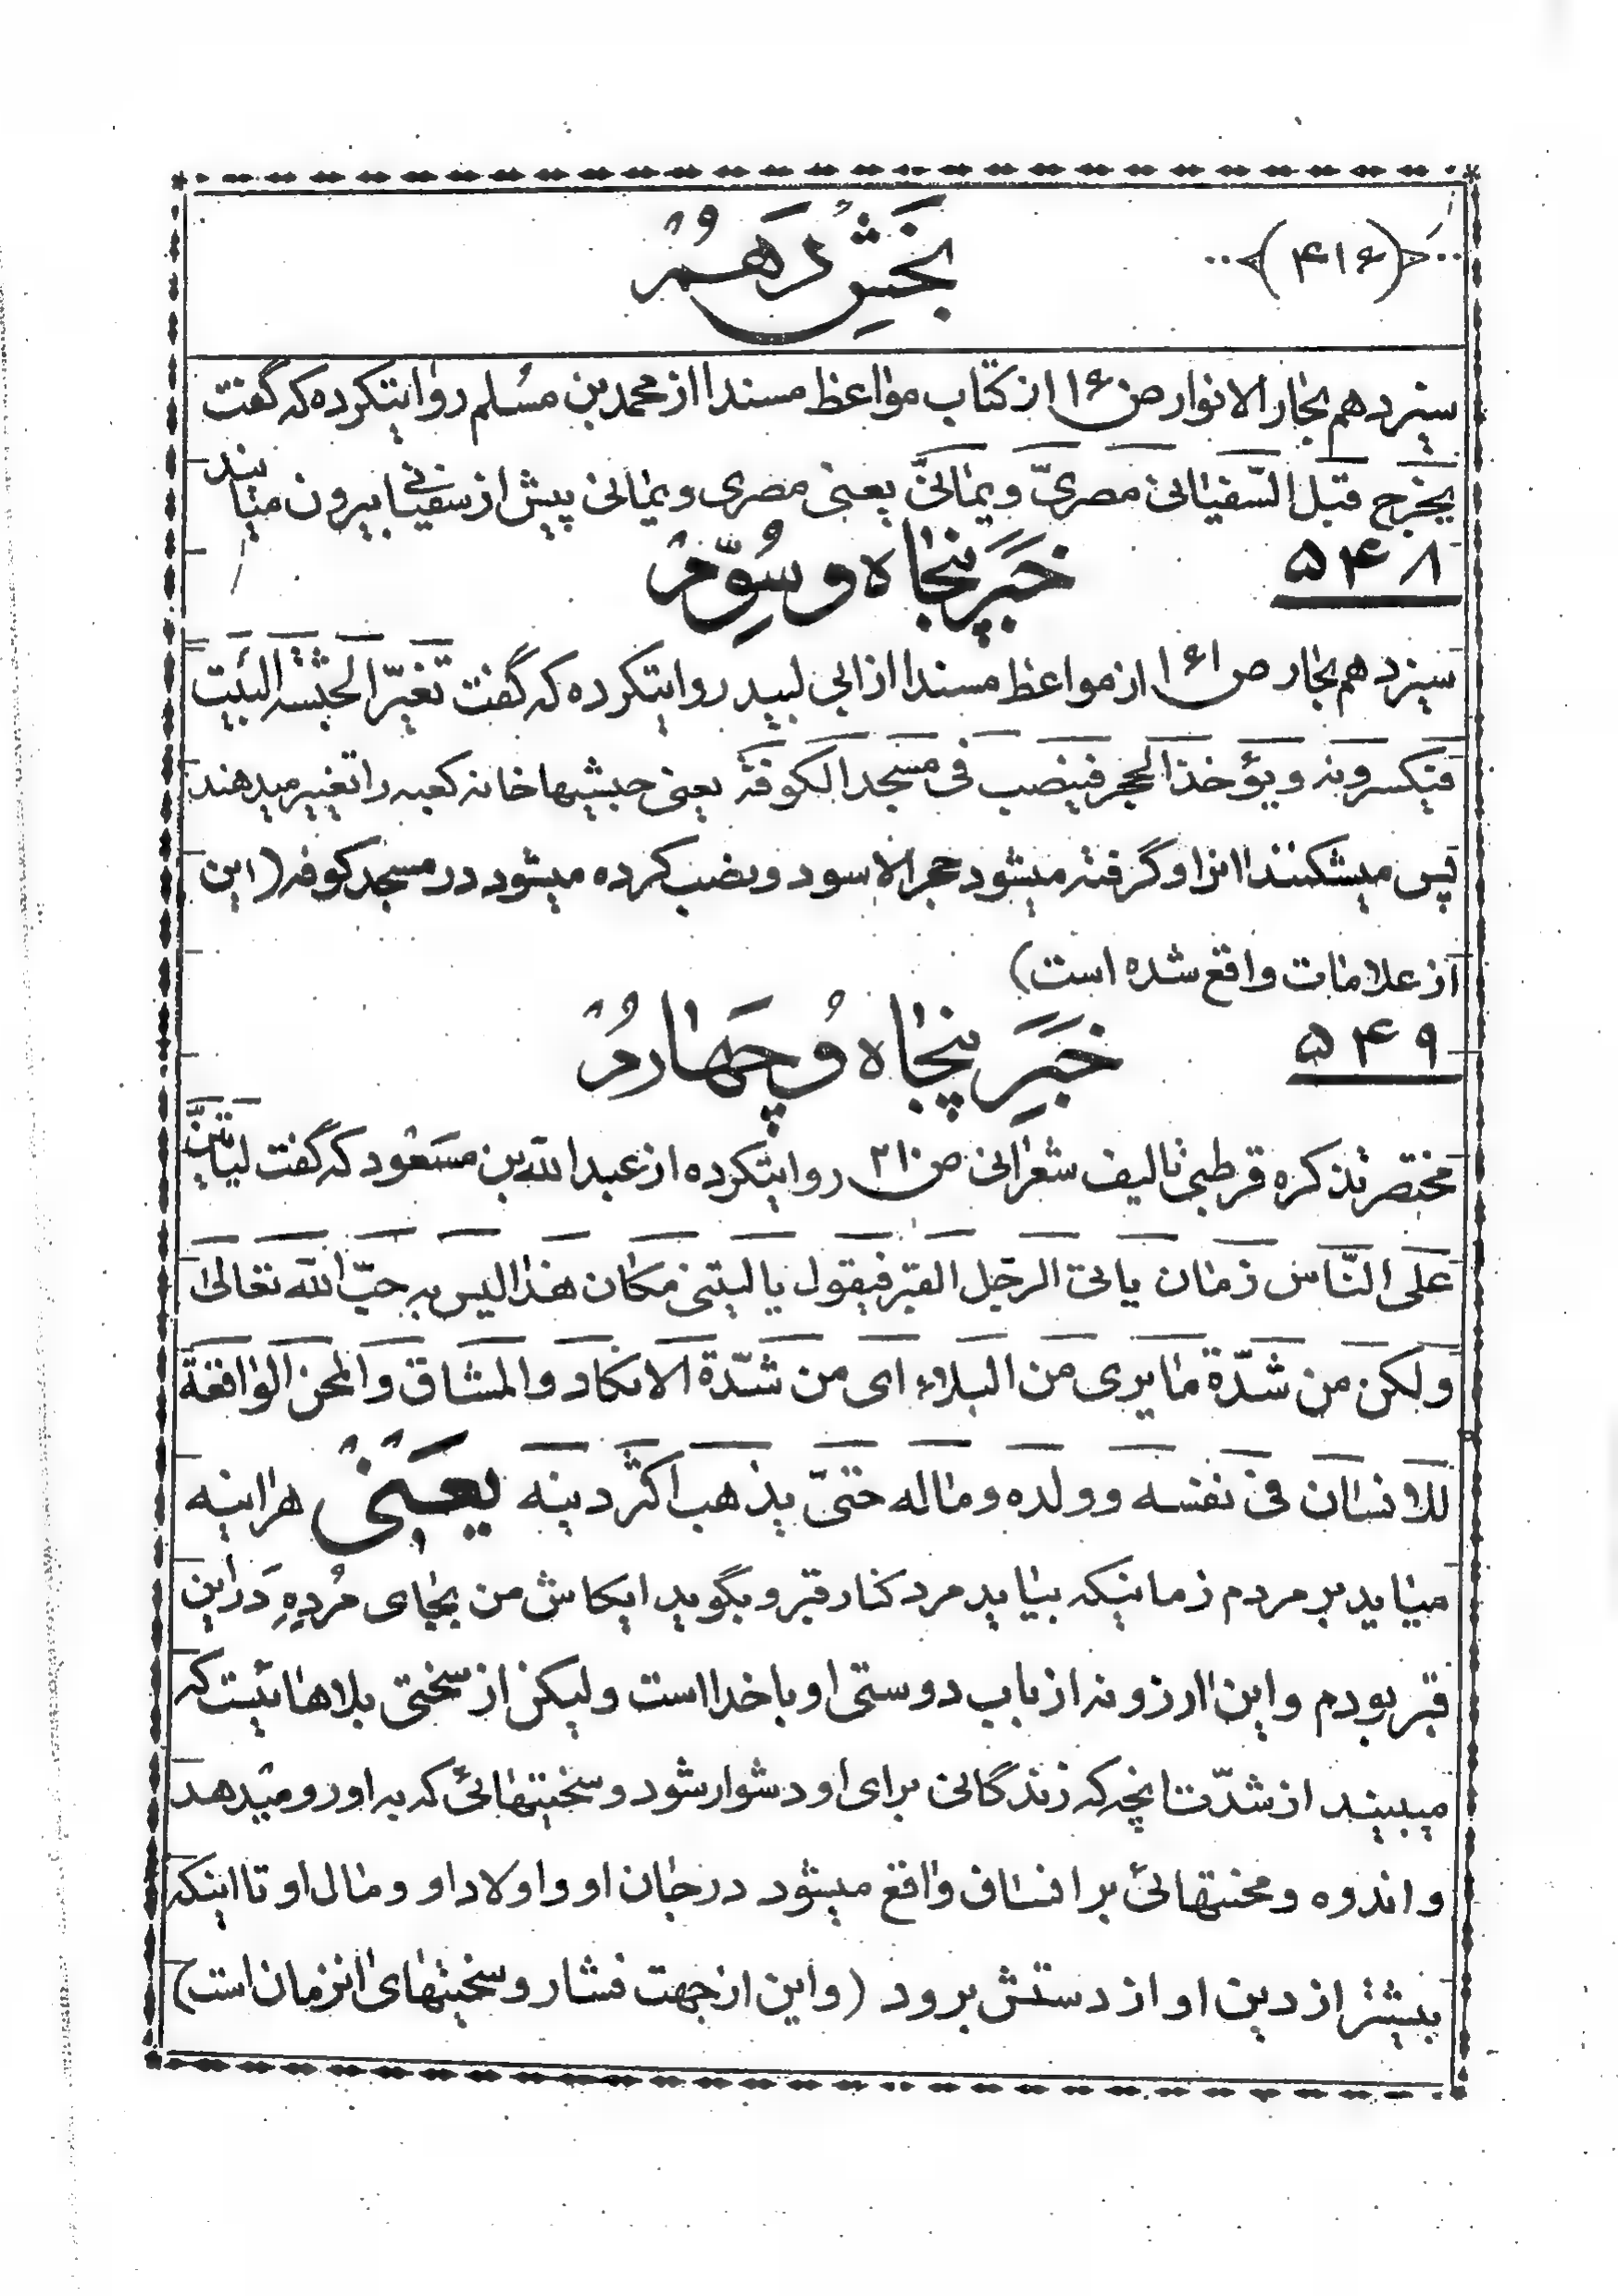 ﴿۴۱۶﴾ بَخْشِ دَهُمْ
سیزدهم بحار الانوار ص ۱۶۱ از کتاب مواعظ مسندا از محمد بن مسلم روایتکرده که گفت
یخرج قبل السّفیانی مصریّ و یمانیّ یعنی مصری و یمانی پیش از سفیانی بیرون میایند
۵۴۸ خَبَرِ پنجاه و سُوِّمْ
سیزدهم بحار ص ۱۶۱ از مواعظ مسندا از ابی لبید روایتکرده که گفت تغیّر الحبشه البیت
فیکسرونه و یؤخذ الحجر فینصب فی مسجد الکوفة یعنی حبشیها خانه کعبه را تغییر میدهند
پس میشکنند انرا و گرفته میشود حجر الاسود و نصب کرده میشود در مسجد کوفه (این
از علامات واقع شده است)
۵۴۹ خَبَرِ پنجاه وُ چَهارُمْ
مختصر تذکره قرطبی تالیف شعرانی ص ۲۱۰ روایتکرده از عبدالله بن مسعود که گفت لیاتینّ
علی النّاس زمان یاتی الرجل القبر فیقول یا لیتنی مکان هذا لیس به حبّ الله تعالی
و لکن من شدّة ما یری من البلاء ای من شدّة الانکاد و المشاق و المحن الواقعة
للانسان فی نفسه و ولده و ماله حتّی یذهب اکثر دینه یَعنی هراینه
میاید بر مردم زمانیکه بیاید مرد کنار قبر و بگوید ایکاش من بجای مُردهِ دَر این
قبر بودم و این ارزو نه از باب دوستی او با خدا است و لیکن از سختی بلاهائیست که
میبیند از شدّت انچه که زندگانی برای او دشوار شود و سختیهائی که به او رو میدهد
و اندوه و محنتهائی بر انسان واقع میشود در جان او و اولاد او و مال او تا اینکه
بیشتر از دین او از دستش برود (و این از جهت فشار و سختیهای انزمان است)